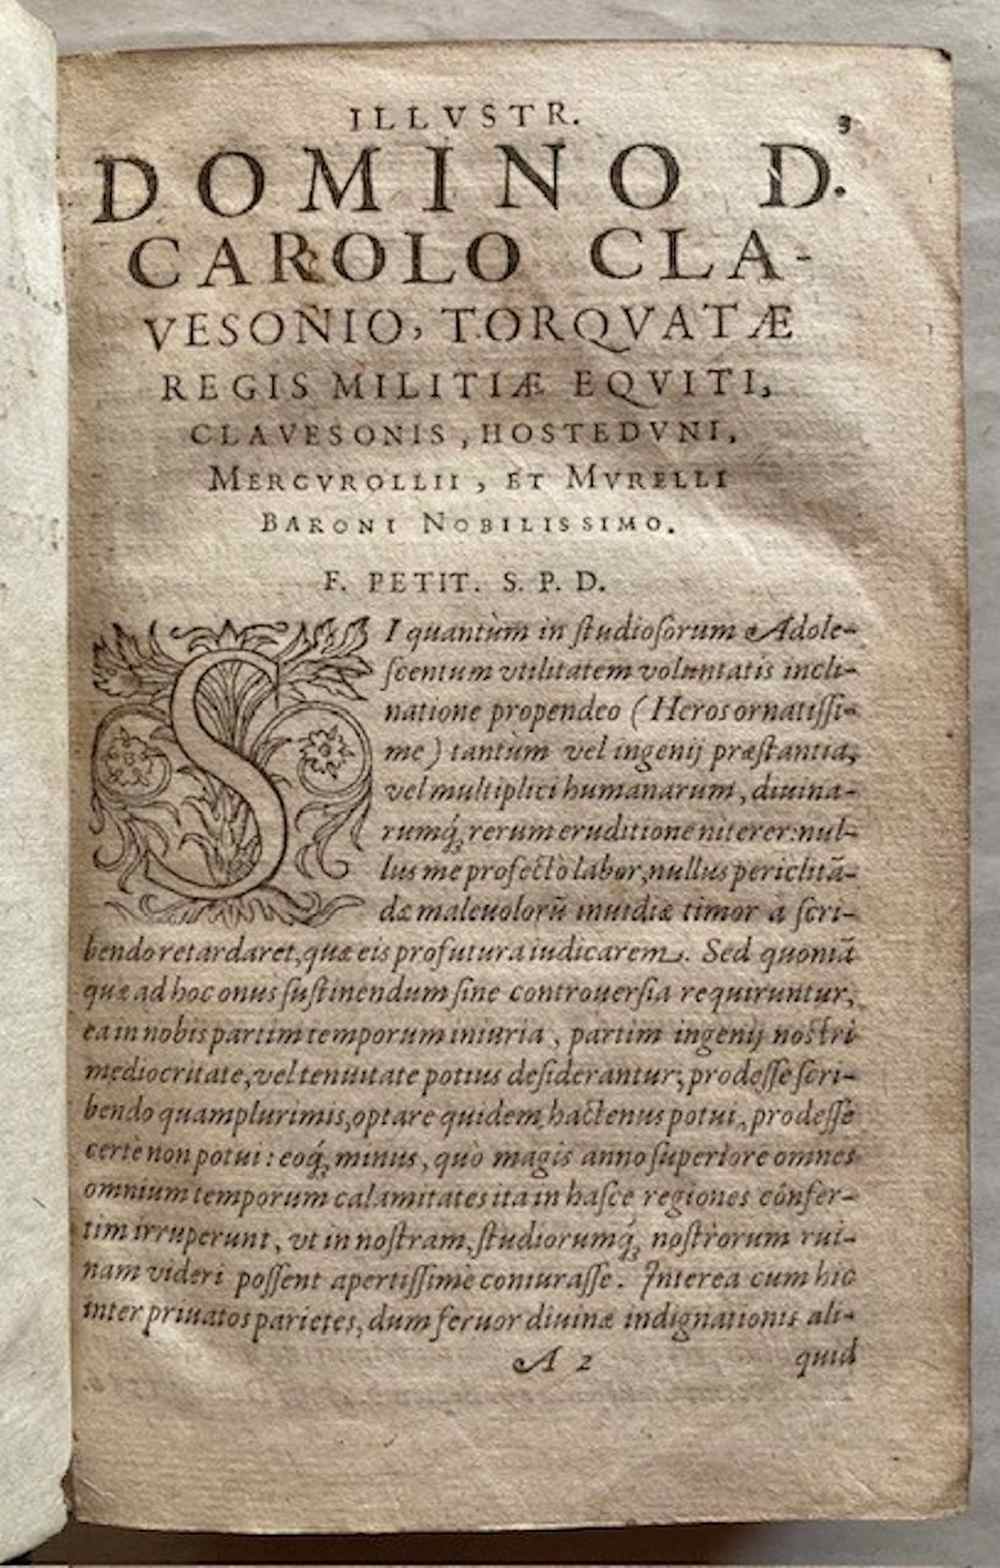 3
ILLVSTR.
DOMINO D.
CAROLO CLA-
VESONIO, TORQVATÆ
REGIS MILITIÆ EQVITI,
CLAVESONIS, HOSTEDVNI,
MERCVROLLII, ET MVRELLI
BARONI NOBILISSIMO.
F. PETIT. S. P. D.
SI quantùm in ſtudioſorum Adole-
ſcentum vtilitatem voluntatis incli-
natione propendeo (Heros ornatiſſi-
me) tantùm vel ingenij præſtantia,
vel multiplici humanarum, diuina-
rumq́; rerum eruditione niterer: nul-
lus me profectò labor, nullus periclitā-
dæ maleuolorū inuidiæ timor à ſcri-
bendo retardaret, quæ eis profutura iudicarem. Sed quoniā
quæ ad hoc onus ſuſtinendum ſine controuerſia requiruntur,
ea in nobis partim temporum iniuria, partim ingenij noſtri
mediocritate, vel tenuitate potius deſiderantur; prodeſſe ſcri-
bendo quamplurimis, optare quidem hactenus potui, prodeſſe
certè non potui: eoq́; minus, quò magis anno ſuperiore omnes
omnium temporum calamitates ita in haſce regiones confer-
tim irruperunt, vt in noſtram, ſtudiorumq́; noſtrorum rui-
nam videri poſſent apertiſſimè coniuraſſe. Interea cum hic
inter priuatos parietes, dum feruor diuinæ indignationis ali-
A 2
quid